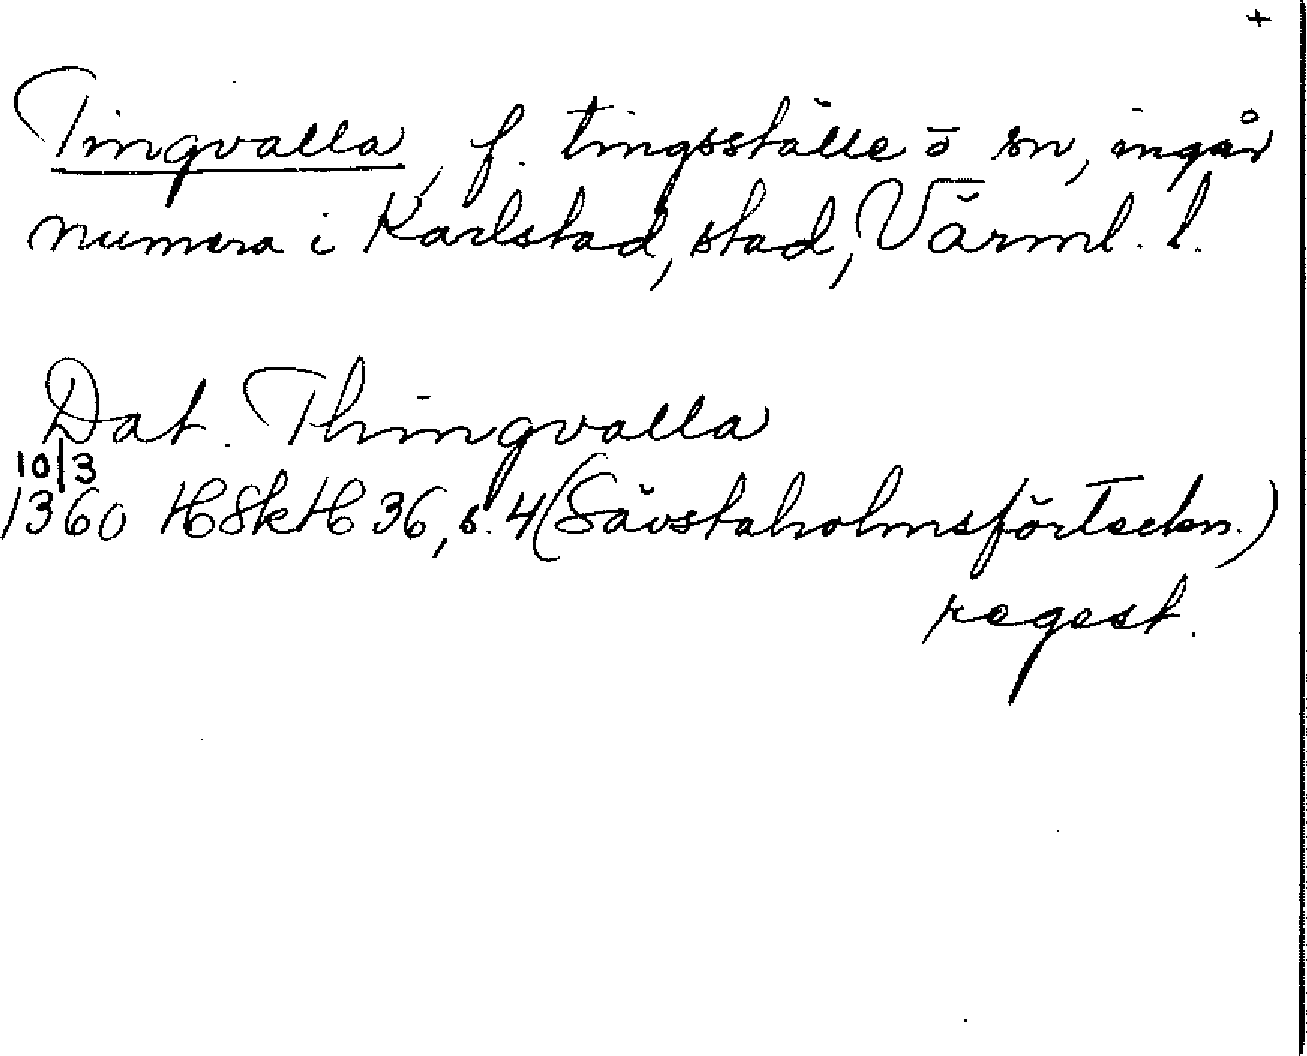 +
Tingvalla, f. tingsställe o sn, ingår
numera i Karlstad, stad, Värml. l.
Dat. Thingvalla
10/3
1360 HSkH 36, s. 4 (Sävstaholmsförteckn.)
regest.